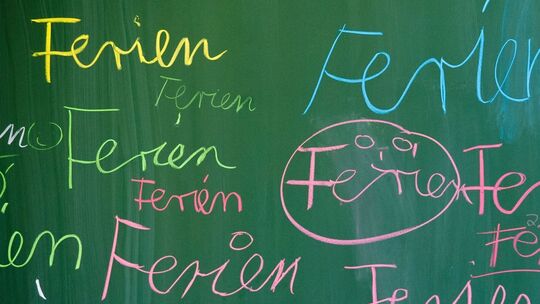 Ferien
Ferien
Ferien
Ferien
Ferien
Ferien
Ferie
Fe
en
Ferien
Ferien